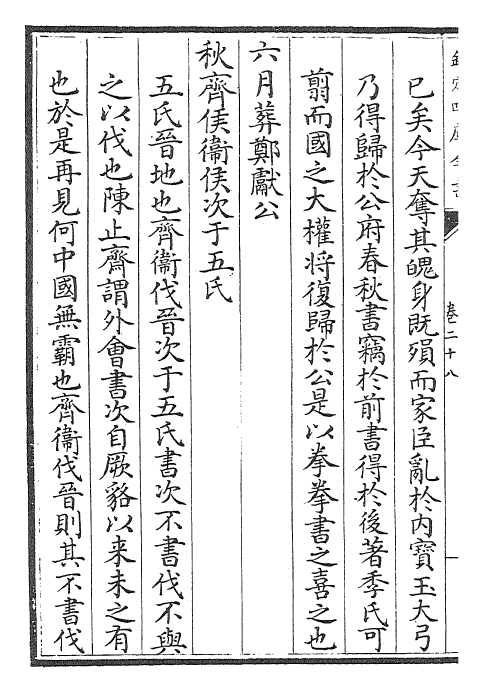 欽定四庫全書
卷二十八
已矣今天奪其魄身既殞而家臣亂於内寶玉大弓
乃得歸於公府春秋書竊於前書得於後著季氏可
翦而國之大權将復歸於公是以拳拳書之喜之也
六月葬鄭獻公
秋齊侯衞侯次于五氏
五氏晉地也齊衞伐晉次于五氏書次不書伐不與
之以伐也陳止齋謂外會書次自厥貉以来未之有
也於是再見何中國無霸也齊衞伐晉則其不書伐